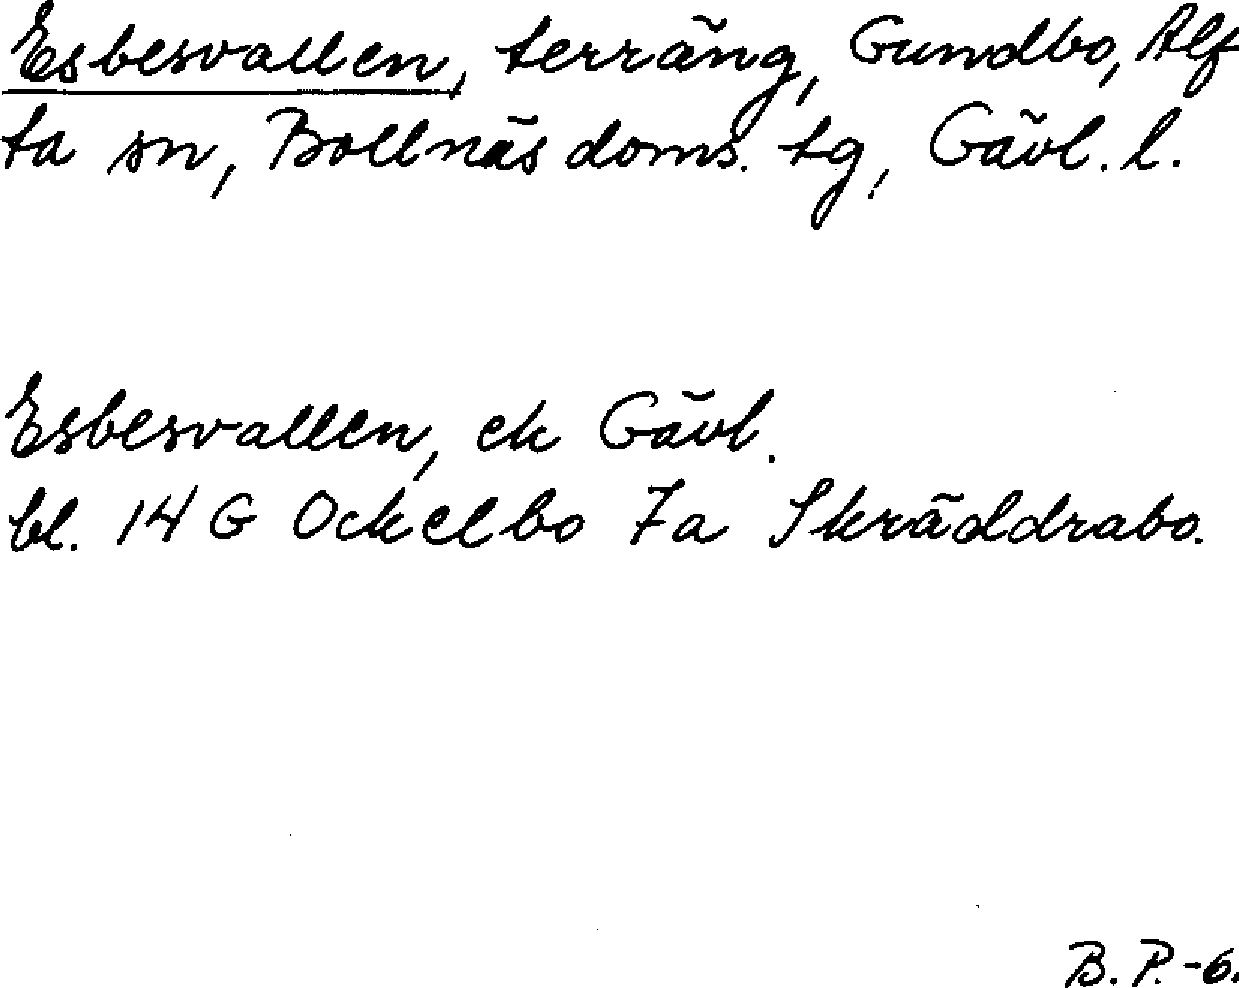 Esbesvallen, terräng, Gundbo, Alf
ta sn, Bollnäs doms. tg, Gävl. l.
Esbesvallen, ek Gävl.
bl. 14 G Ockelbo 7a Skräddrabo.
B. P. -6.